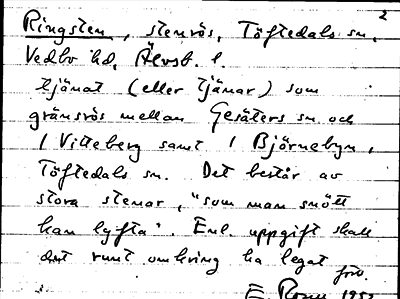 2
Ringsten, stenrös, Töftedals sn,
Vedbo hd, Älvsb. l.
tjänat (eller tjänar) som
gränsrös mellan Gesäters sn och
1 Vitteberg samt 1 Björnebyn,
Töftedals sn. Det består av
stora stenar, "som man snött
kan lyfta". Enl. uppgift skall
det runt omkring ha legat
förv.
E 1952